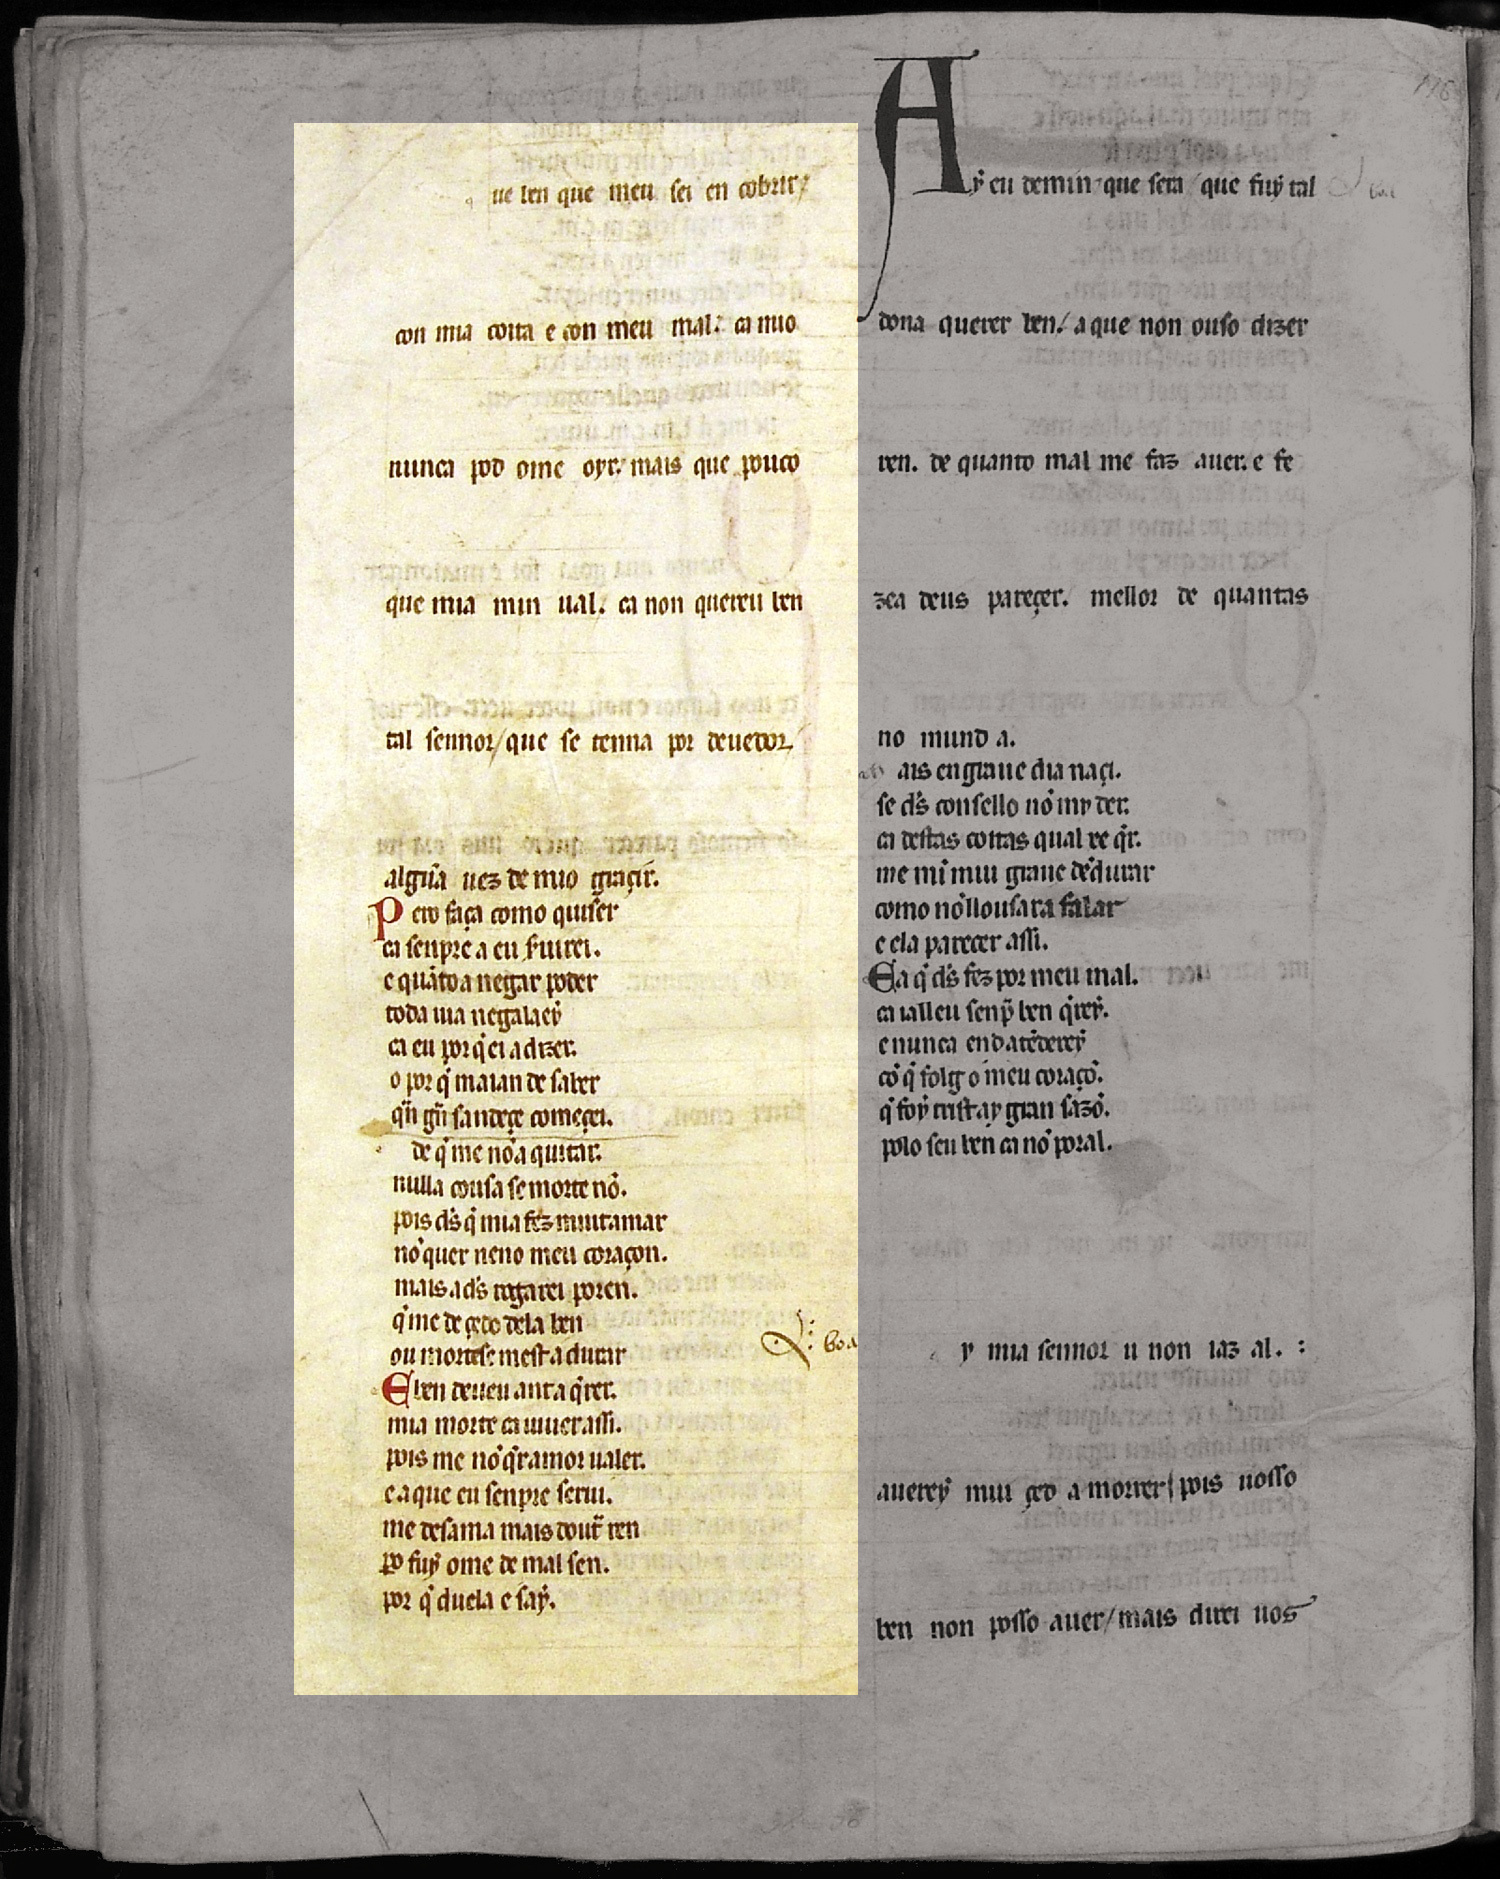 ue ben que meu sei en cobrir/
con mia coita e con meu mal: ca mio
nunca pod ome oyr: mais que pouco
que mia min ual. ca non quereu ben
tal sennor/que se tenna por deuedor/
algũa uez de mio graçir.
Pero faça como quiser
ca senpre a eu s̃uirei.
e quãto a negar poder
toda uia negalaeẏ
ca eu por q̃ ei a dizer.
o por q̃ maian de saber
qñ grñ sandeçe começei.
de q̃ me nõ a quitar.
nulla cousa se morte nõ.
pois ds̃ q̃ mia fez muitamar
nõ quer neno meu coraçon.
mais a ds̃ rogarei poren.
q̃ me de çedo dela ben
ou morte se mest a durar
E ben deueu anta q̃rer.
mia morte ca uiuer assi.
pois me nõ q̃r amor ualer.
e a que eu senpre serui.
me desama mais doutr̃ ren
ꝑo fuẏ ome de mal sen.
por q̃ duela e saẏ.
boa
Aẏ eu de min que sera que fuẏ tal
dona querer ben/ a que non ouso dizer
ren. de quanto mal me faz auer. e fe
zea deus pareçer. mellor de quantas
no mund a.
ais en graue dia naçi.
se ds̃ consello nõ my der.
ca destas coitas qual xe q̃r.
me mĩ mui graue dẽdurar
como nõ llousar a falar
e ela parecer assi.
Ea q̃ ds̃ fez por meu mal.
ca ialleu senp̃ ben q̃reẏ.
e nunca end atẽdereẏ
cõ q̃ folg o meu coraçõ.
q̃ foy trist ay gran sazõ.
polo seu ben ca nõ por al.
y mia sennor u non iaz al. :
auereẏ mui çed a morrer/pois uosso
ben non posso auer/mais direi uos